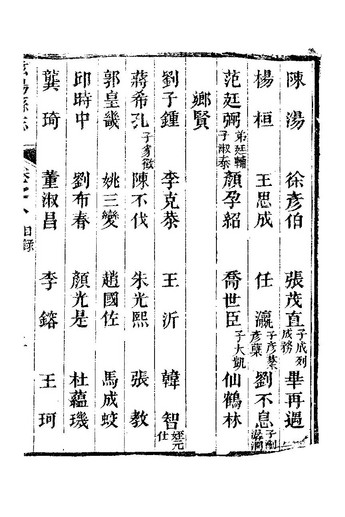 陳湯　徐彥伯　張茂直子成列成務　畢再遇
楊桓　王思成　任瀛子彥棻彥蘖　劉不息子澍
范廷弼弟廷輔子淑泰　顏孕紹　喬世臣子大凱　仙鶴林
鄉賢
劉子鍾　李克恭　王沂　韓智姪元仕
蔣希孔子豸徵　陳不伐　朱光熙　張教
郭皇畿　姚三變　趙國佐　馬成蛟
邱時中　劉布春　顏光是　杜蘊璣
龔琦　董淑昌　李鎔　王珂
縣志　卷之八　目錄